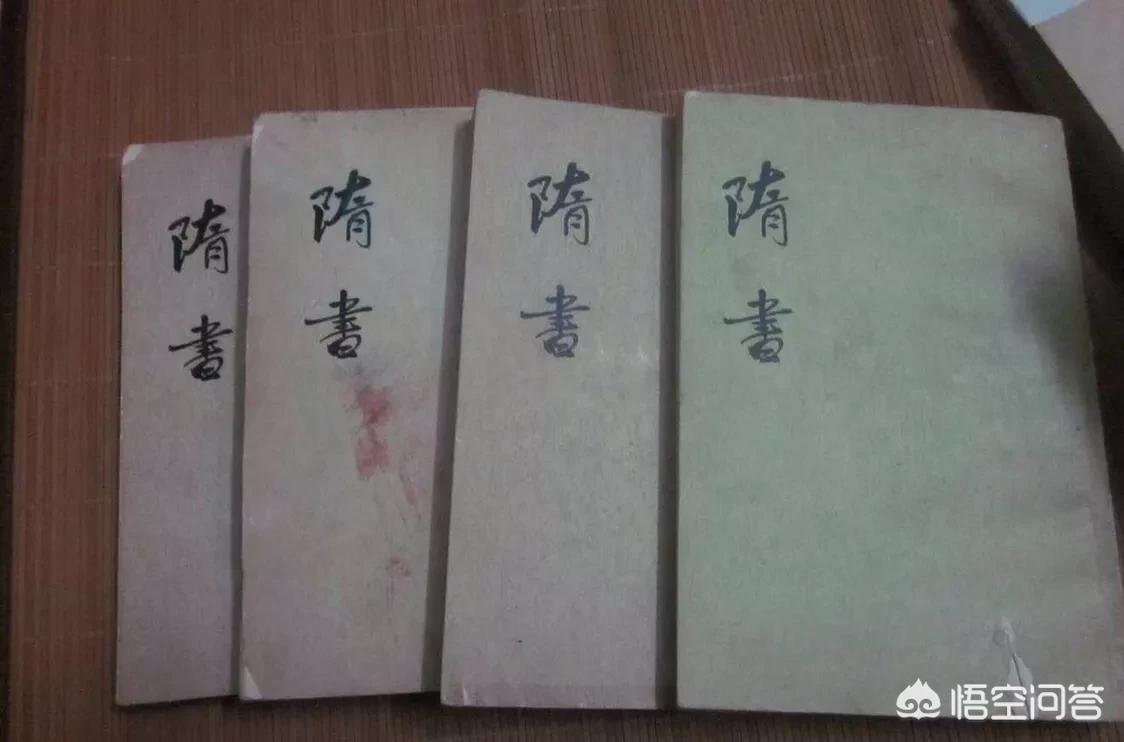 隋書
隋書
隋書
隋書
悟空问答